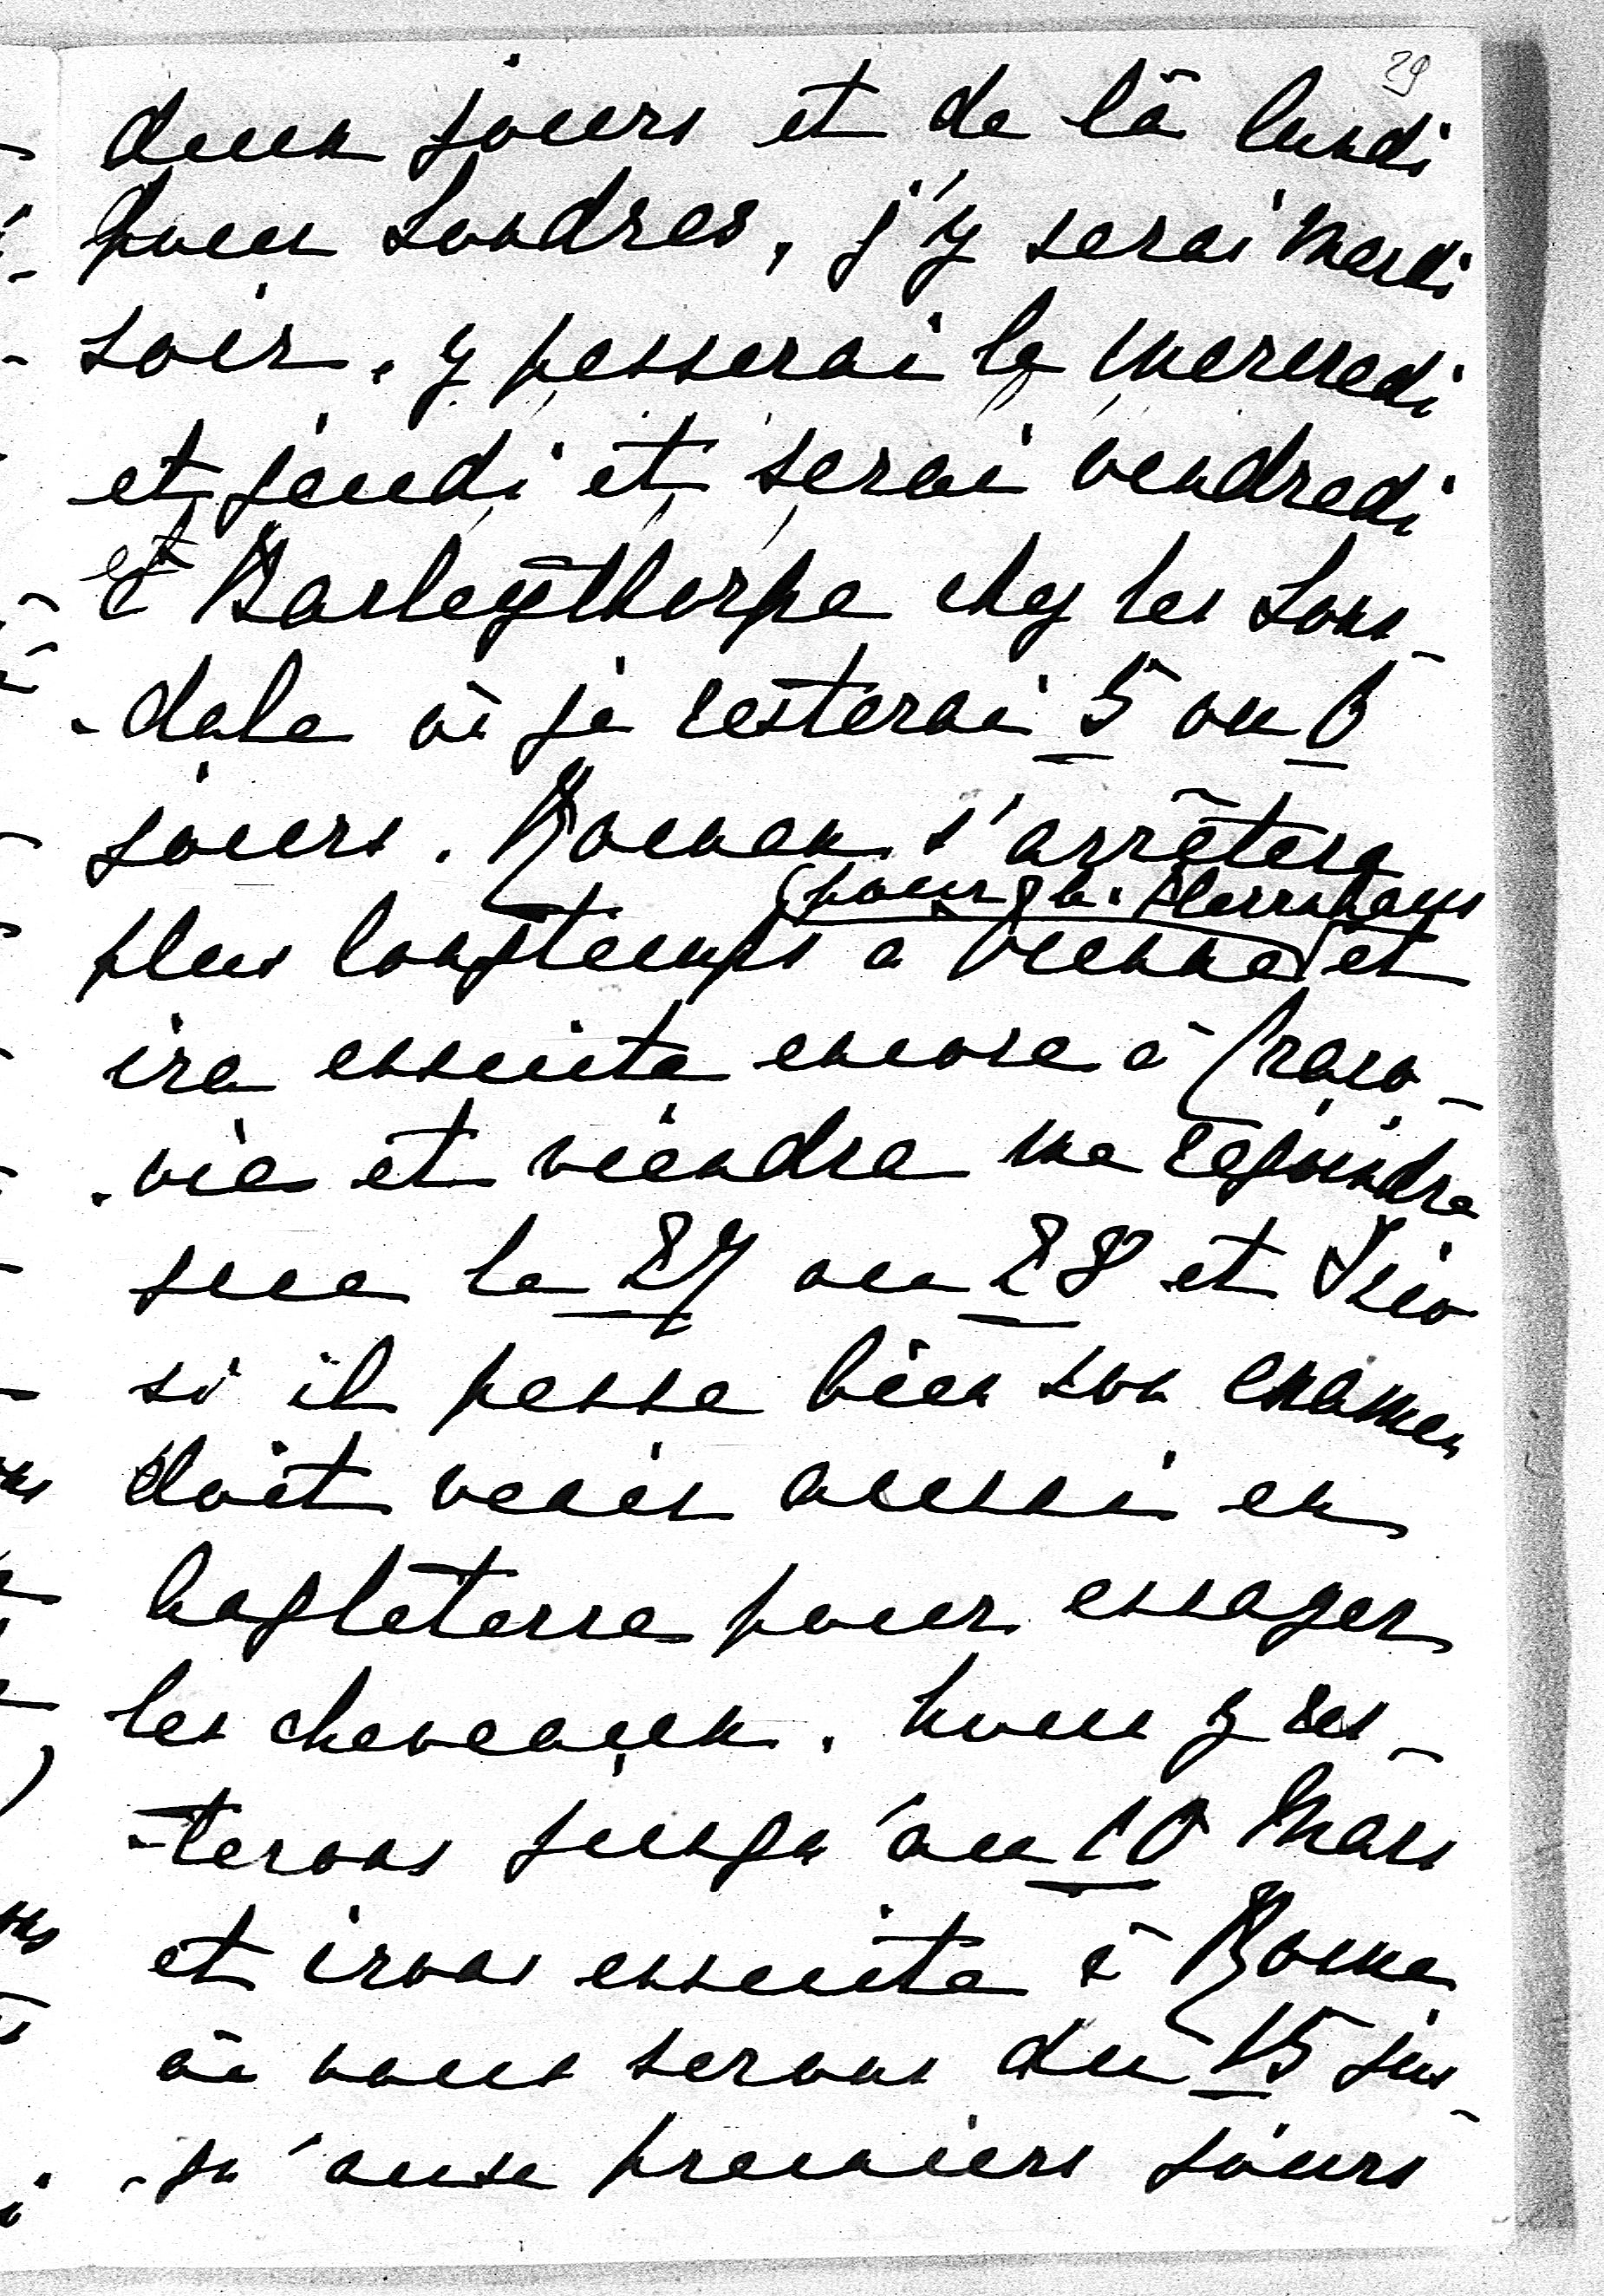 29
deux jours et de là lundi
pour Londres, j'y serai mardi
soir, y passerai le mercredi
et jeudi et serai vendredi
à Barleythorpe chez les Lons-
-dale où je resterai 5 ou 6
jours. Roman s'arrêtera
(pour le Herrnhaus)
plus longtemps à Vienne et
ira ensuite encore à Craco-
-vie et viendra me rejoindre
que le 27 ou 28 et
si il passe bien son examen
doit venir aussi en
Angleterre pour essayer
les chevaux. Nous y res-
-terons jusqu'au 10 Mars
et irons ensuite à Rome
où nous serons du 15 jus-
-qu'aux premiers jours